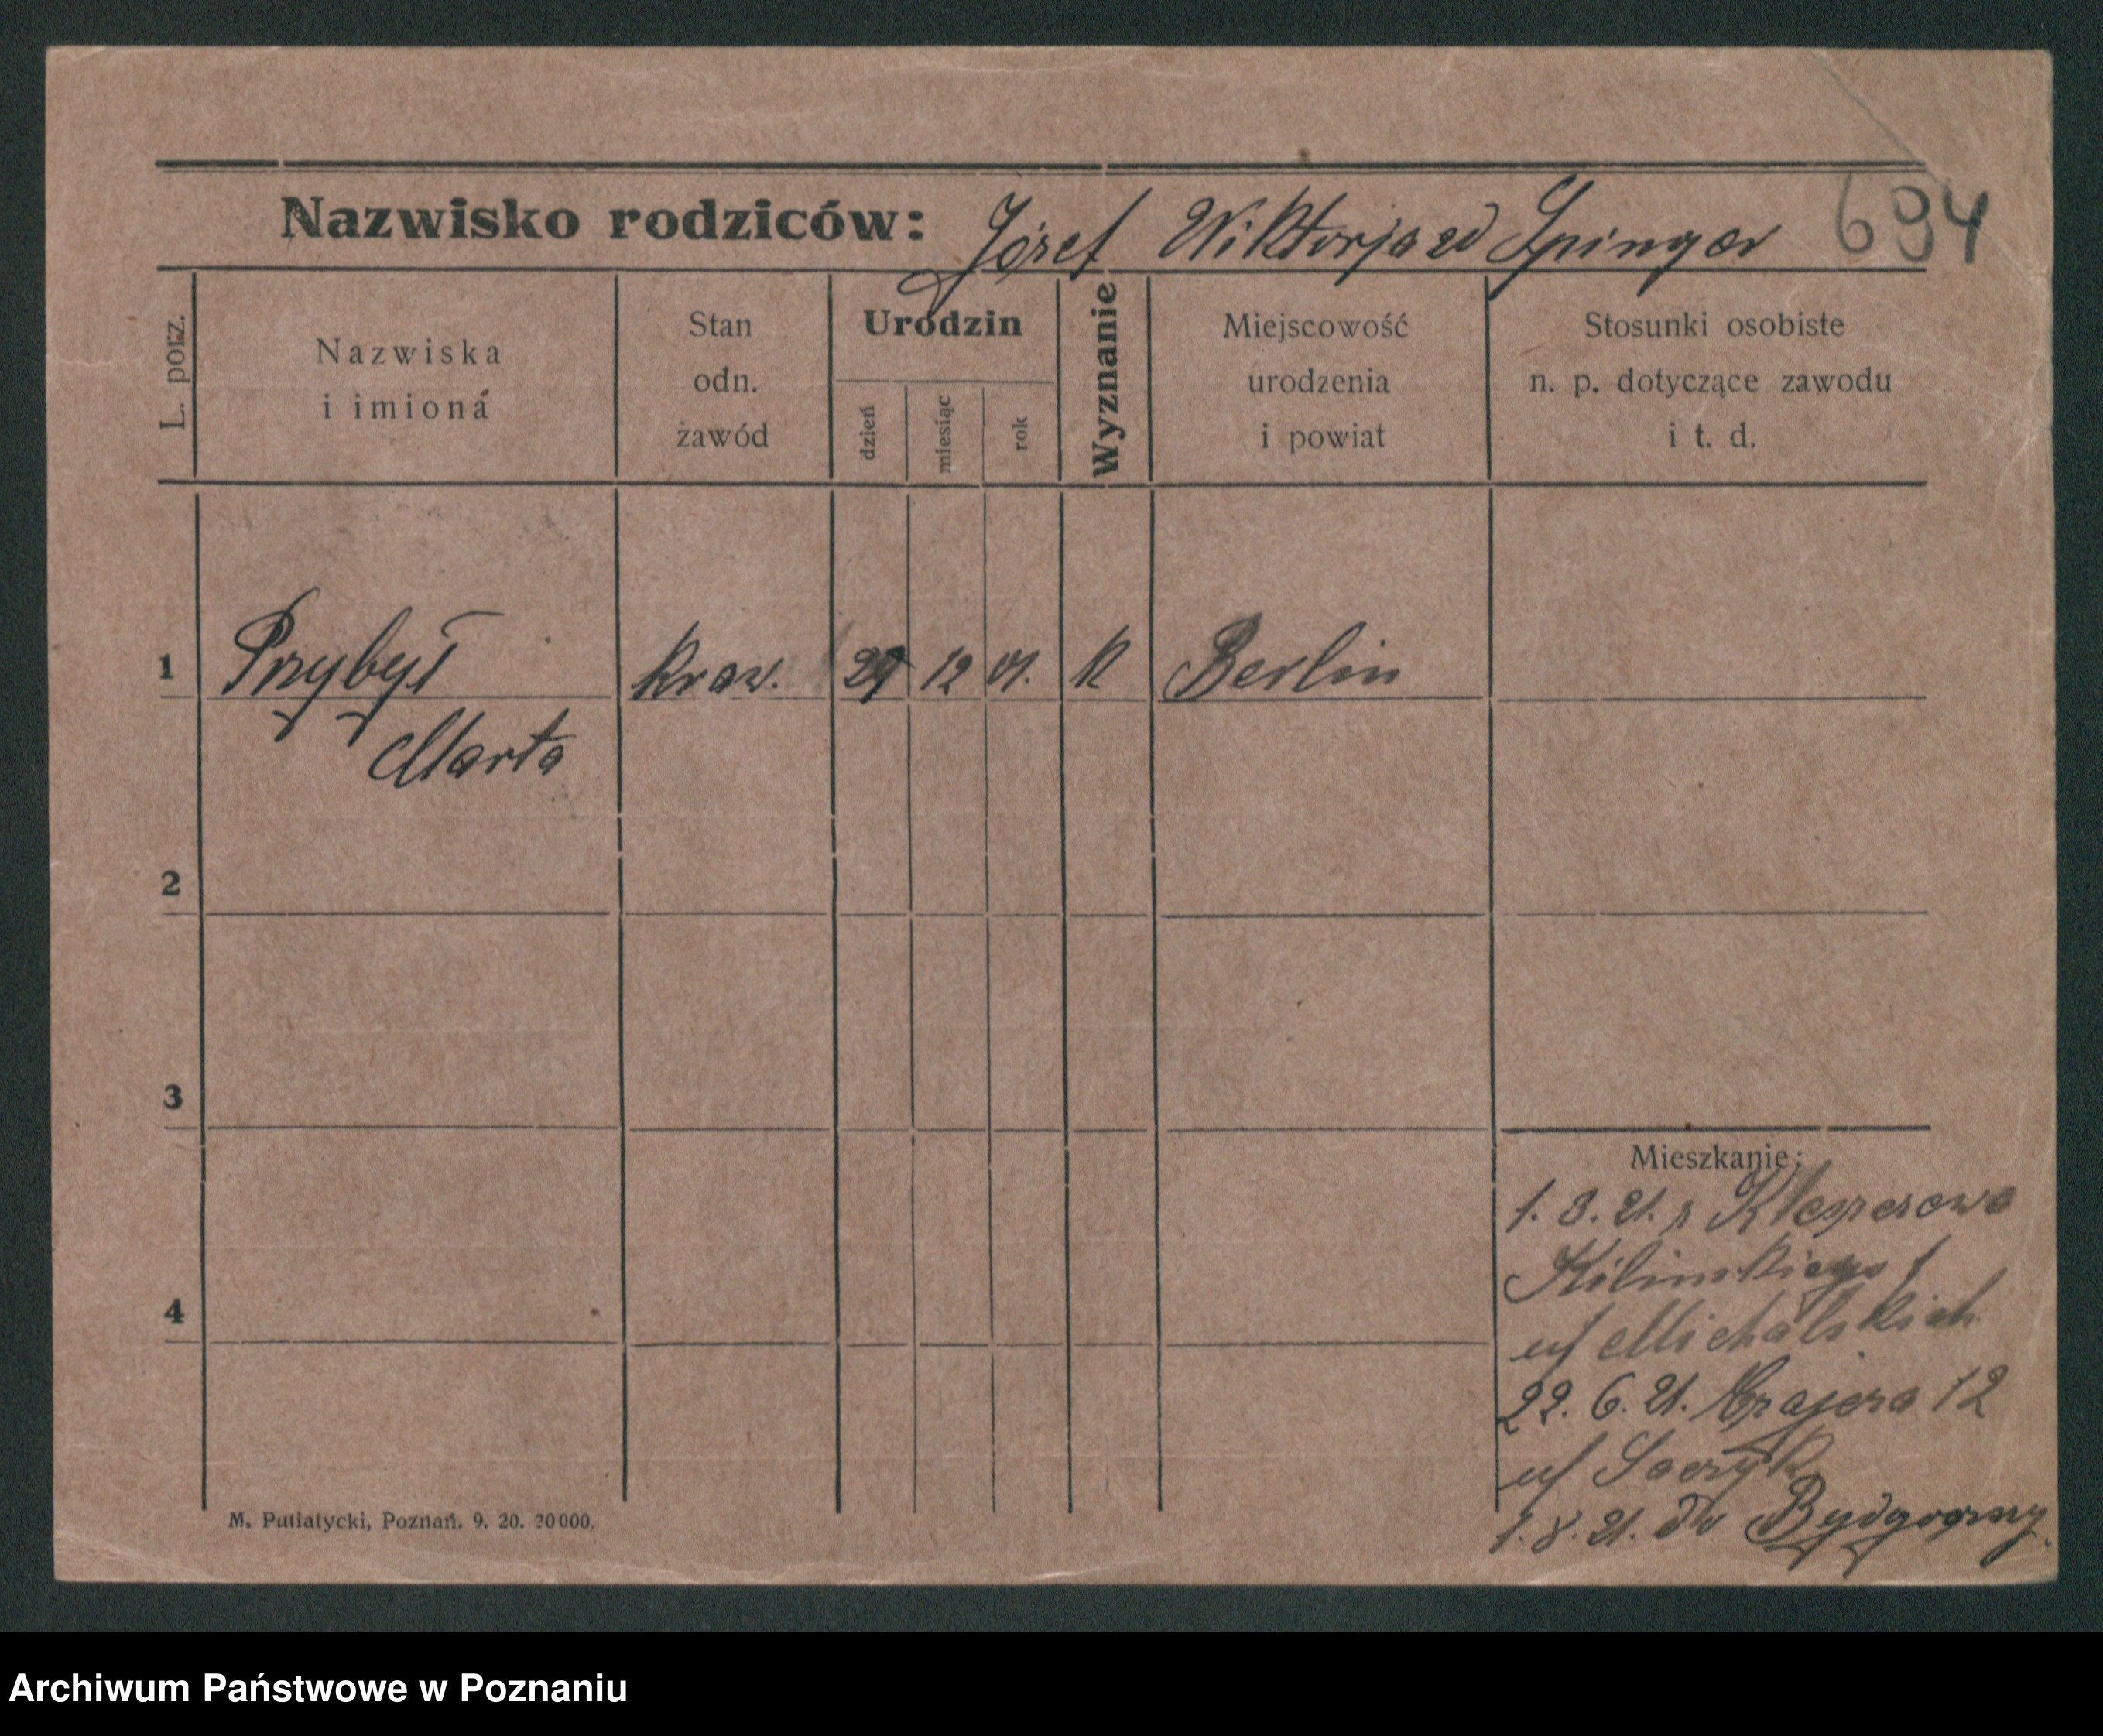 Nazwisko rodziców: Józef Wiktorja zd Szpinger 694
L. porz.
Nazwiska i imiona
Stan odn. zawód
Urodzin
dzień
miesiąc
rok
Wyznanie
Miejscowość urodzenia i powiat
Stosunki osobiste n. p. dotyczące zawodu i t. d.
1 Przybył kraw. 29 12 01. k Berlin
Marta
2
3
4
Mieszkanie:
1. 3. 21. z
Kilinskiego
u/ Michalskich
22. 6. 21. 12
u/
1. 8. 21. do Bydgoszczy.
M. Putiatycki, Poznań. 9. 20. 20000.
Archiwum Państwowe w Poznaniu